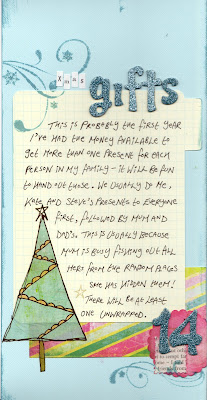 Xmas
gifts
This is probably the first year
I've had the money available to
get more than one present for each
person in my family - it will be fun
to hand out those. We usually do me,
Kate and Steve's presents to everyone
first, followed by mum and
dad's. This is usually because
mum is busy fishing out all
hers from the random places
she has hidden them!
There will be at least
one unwrapped.
14